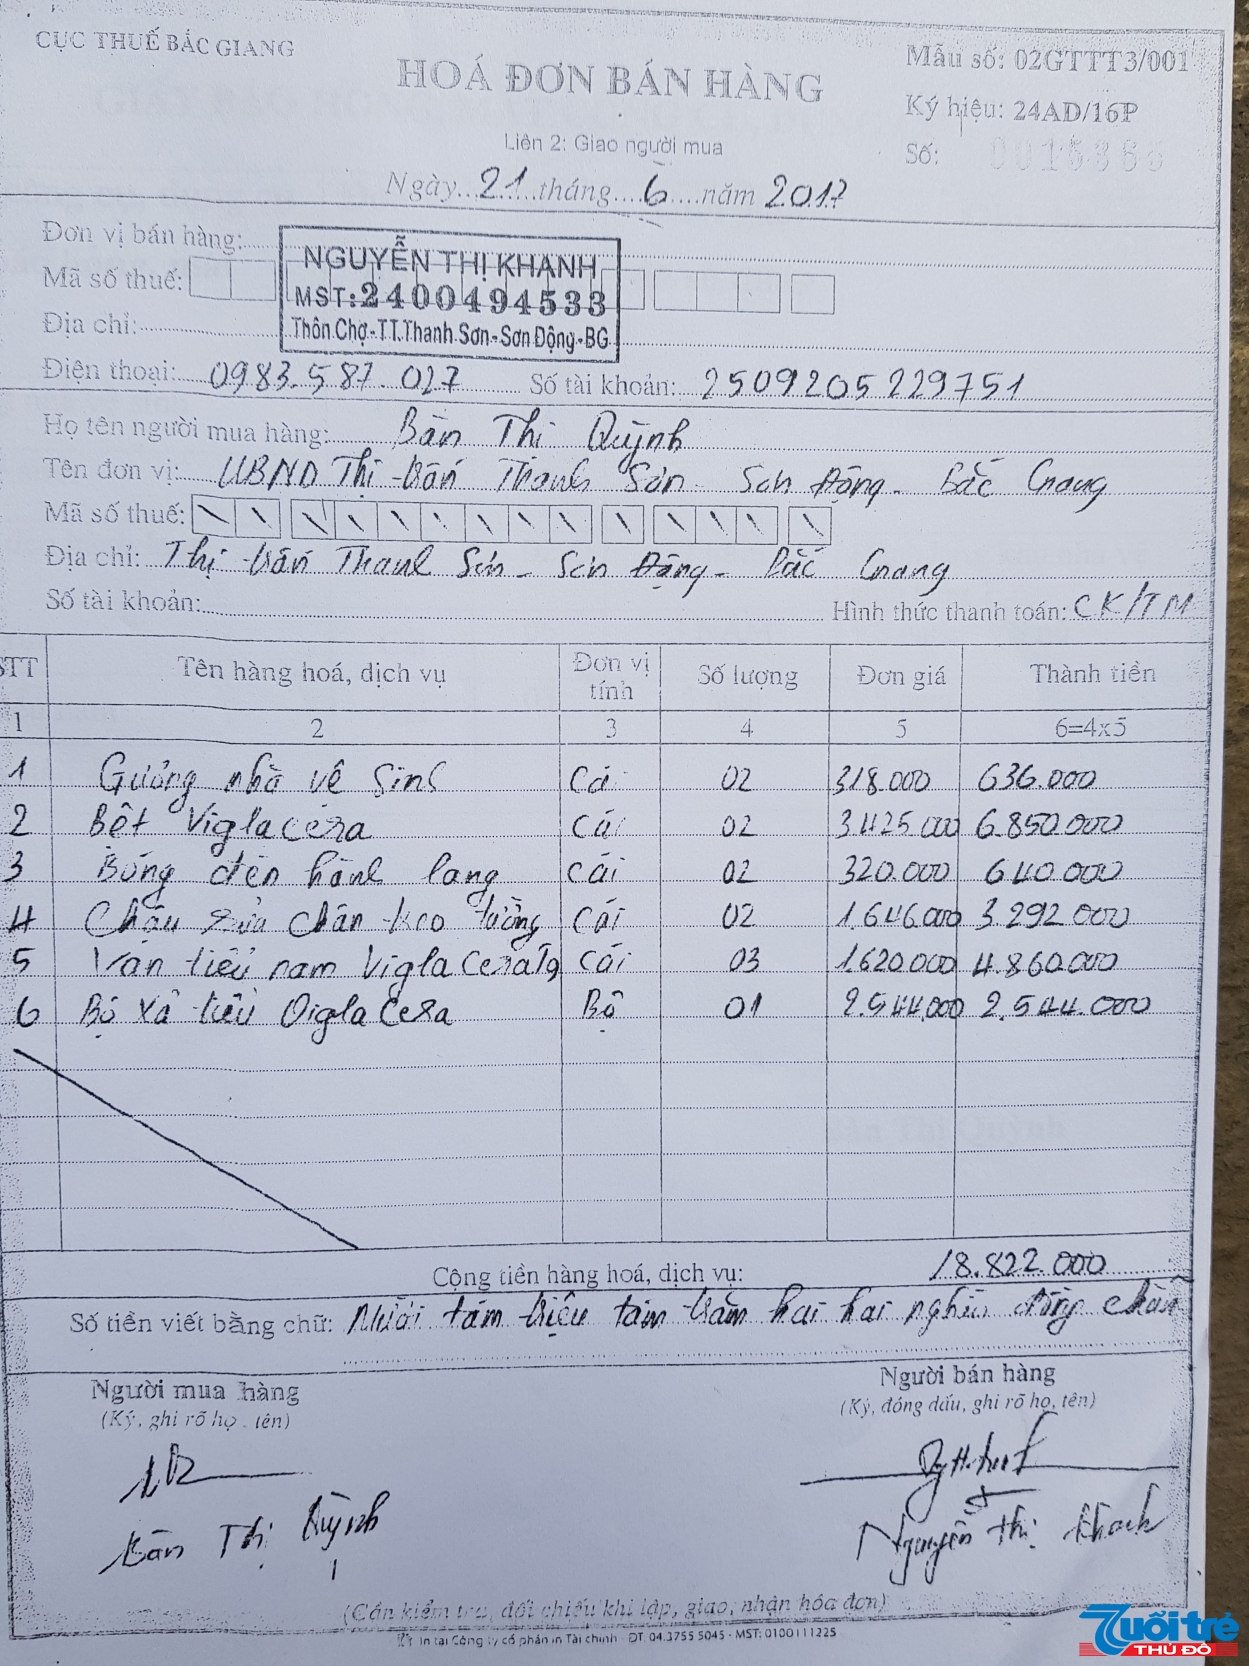 CỤC THUẾ BẮC GIANG
HOÁ ĐƠN BÁN HÀNG
Mẫu số: 02GTTT3/001
Ký hiệu: 24AD/16P
Liên 2: Giao người mua
Số:
Ngày...21...tháng....6....năm 2017
Đơn vị bán hàng:
NGUYỄN THỊ KHANH
Mã số thuế:
MST:2400494533
Địa chỉ:
Thôn Chợ-TT.Thanh Sơn-Sơn Động-BG
Điện thoại: 0983.587.027 Số tài khoản: 2509205229751
Họ tên người mua hàng: Bàn Thị Quỳnh
Tên đơn vị: UBND Thị trấn Thanh Sơn - Sơn Động - Bắc Giang
Mã số thuế:
Địa chỉ: Thị trấn Thanh Sơn - Sơn Động - Bắc Giang
Số tài khoản: Hình thức thanh toán: CK/TM
STT Tên hàng hoá, dịch vụ Đơn vị tính Số lượng Đơn giá Thành tiền
1 2 3 4 5 6=4x5
1 Gương nhà vệ sinh Cái 02 318.000 636.000
2 Bệt Viglacera Cái 02 3.425.000 6.850.000
3 Bóng đèn hành lang Cái 02 320.000 640.000
4 Chậu rửa chân treo tường Cái 02 1.646.000 3.292.000
5 Van tiểu nam Viglacera Cái 03 1.620.000 4.860.000
6 Bộ xả tiểu Viglacera Bộ 01 2.544.000 2.544.000
Cộng tiền hàng hoá, dịch vụ: 18.822.000
Số tiền viết bằng chữ: Mười tám triệu tám trăm hai hai nghìn đồng chẵn
Người mua hàng
(Ký, ghi rõ họ, tên)
Người bán hàng
(Ký, đóng dấu, ghi rõ họ, tên)
Bàn Thị Quỳnh
Nguyễn Thị Khanh
(Cần kiểm tra, đối chiếu khi lập, giao, nhận hóa đơn)
In tại Công ty cổ phần in Tài chính - ĐT: 04.3755 5045 - MST: 0100111225
Tuổi trẻ
THỦ ĐÔ